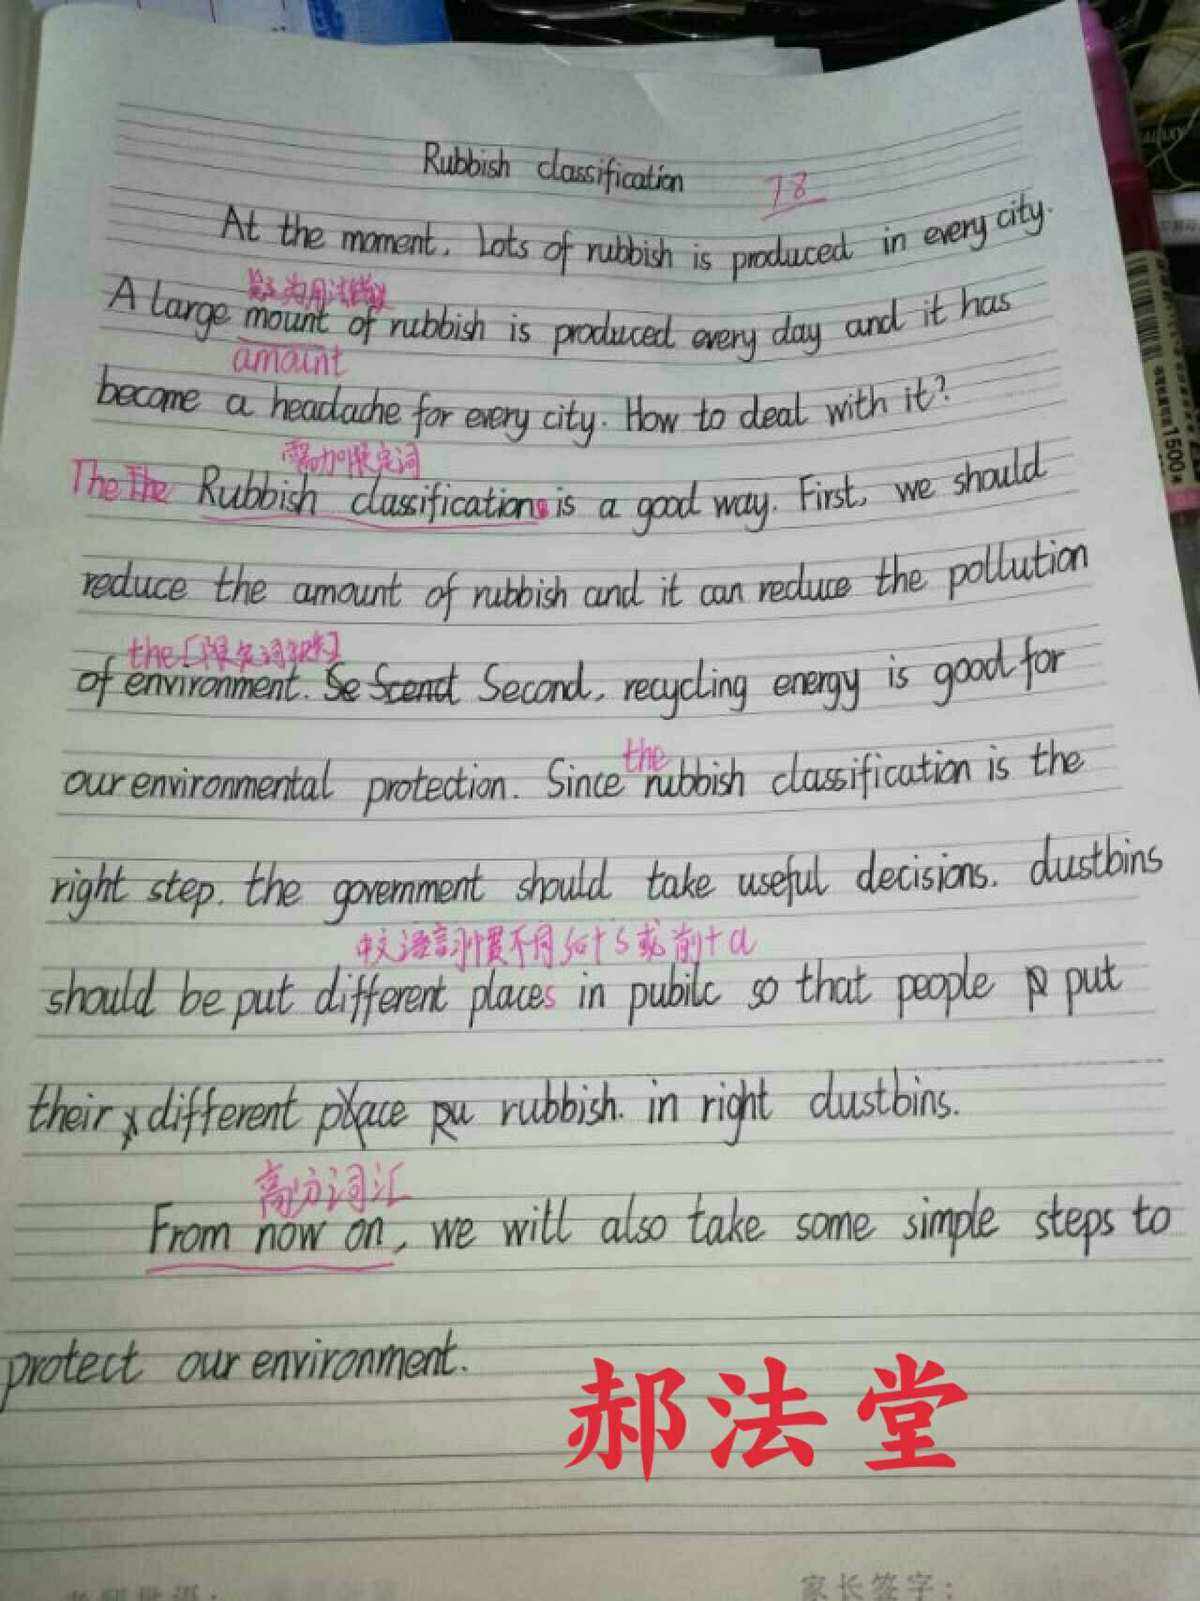 Rubbish classification 78
At the moment. Lots of rubbish is produced in every city.
疑为用法错误
A large mount of rubbish is produced every day and it has
amount
become a headache for every city. How to deal with it?
需加限定词
The The Rubbish classifications is a good way. First, we should
reduce the amount of rubbish and it can reduce the pollution
the [限定词缺失]
of environment. Se Scend Second, recycling energy is good for
the
our environmental protection. Since rubbish classification is the
right step. the government should take useful decisions. dustbins
中文语言习惯不同 后+s或前+a
should be put different places in pubilc so that people p put
their different place Ru rubbish. in right dustbins.
高分词汇
From now on, we will also take some simple steps to
protect our environment.
郝法堂
家长签字:
1500米